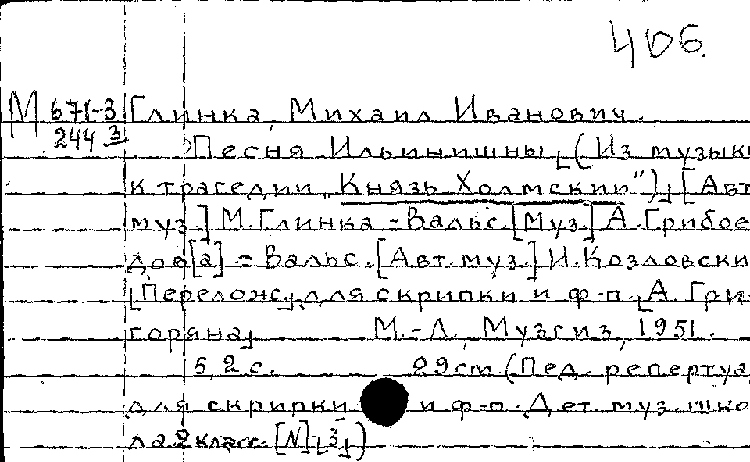 406.
М 671-3 Глинка, Михаил Иванович.
244 3 Песня Ильинишны [(Из музыки
к трагедии „Князь Холмский")] [Авт.
муз.] М. Глинка = Вальс. [Муз.] А. Грибое-
дов[а] = Вальс. [Авт. муз.] И. Козловски
[Перелож.] для скрипки и ф-п. [А. Гри-
горяна] М.-Л., Музгиз, 1951.
5, 2 с. 29 см (Пед. репертуа
для скрипки и ф-п. Дет. муз. шко-
ла 2 класс. [N] [3])